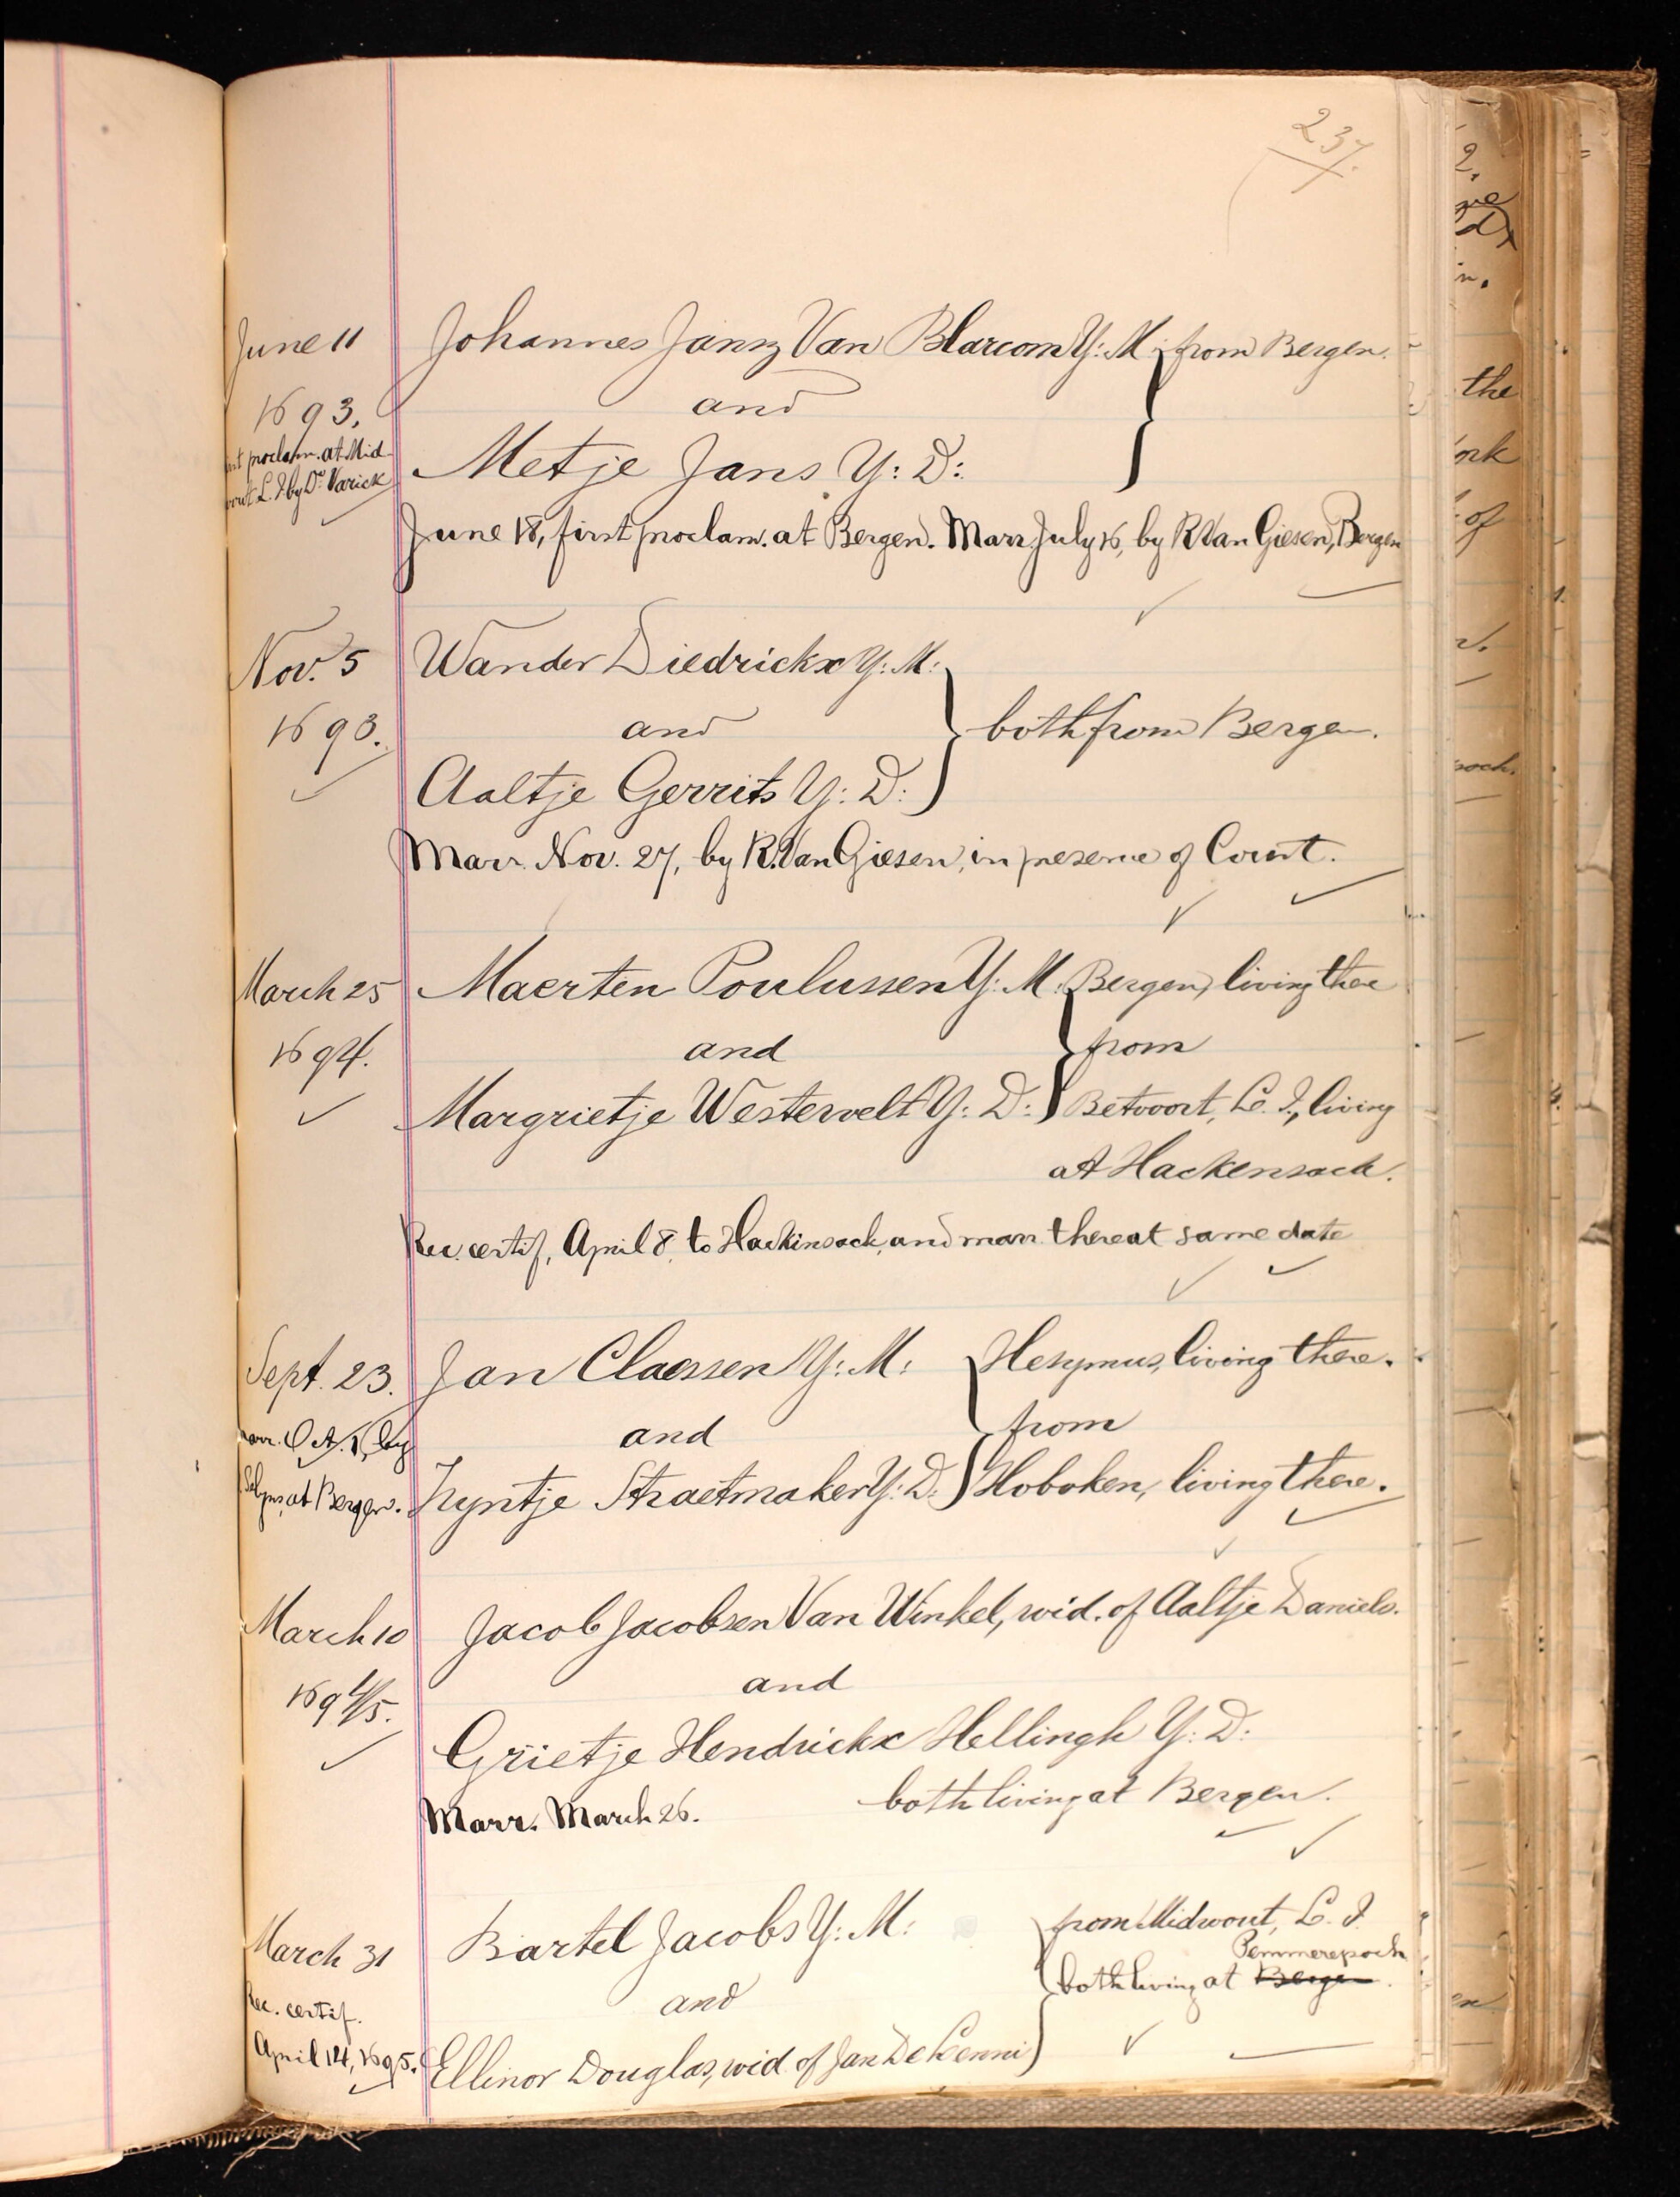 237.
June 11 Johannes Jansz Van Blarcom Y: M. } from Bergen.
1693. and
1st proclam. at Mid- Metje Jans Y: D:
wout L. I by Do. Varick
June 18, first proclam. at Bergen. Marr. July 16, by R. Van Giesen, Bergen
Nov. 5 Wander Diedrickx Y: M:
1693. and } both from Bergen.
Aaltje Gerrits Y: D:
Marr. Nov. 27, by R. Van Giesen, in presence of Court.
March 25 Maerten Poulussen Y: M. } Bergen, living there
1694. and from
Margrietje Westervelt Y: D: Betvoort, L. I., living
at Hackensack.
Rec. certif, April 8, to Hackinsack, and marr. thereat same date
Sept. 23. Jan Claessen Y: M: } Hesymus, living there.
marr. Oct. 1, by and from
Selyns, at Bergen. Tryntje Straetmaker Y: D: Hoboken, living there.
March 10 Jacob Jacobsen Van Winkel, wid. of Aaltje Daniels.
1694/5. and
Grietje Hendrickx Hellingh Y: D:
Marr. March 26. both living at Bergen.
March 31 Bartel Jacobs Y: M: } from Midwout, L. I.
Pemmerepoch
Rec. certif. and both living at Bergen.
April 14, 1695. Ellinor Douglas, wid. of Jan De Lenni
2.
the
of